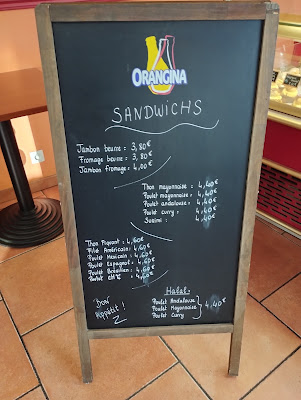 ORANGINA
SANDWICHS
Jambon beurre : 3,80€
Fromage beurre : 3,80€
Jambon fromage : 4,00€
Thon mayonnaise : 4,40€
Poulet mayonnaise : 4,40€
Poulet andalouse : 4,40€
Poulet curry : 4,40€
Surimi : 4,40€
Thon Piquant : 4,60€
Filet Américain : 4,60€
Poulet Mexicain : 4,60€
Poulet Espagnol : 4,60€
Poulet Brésilien : 4,60€
Poulet 4,60€
Halal :
Poulet Andalouse
Poulet Mayonnaise 4,40€
Poulet Curry
Bon
Appétit !